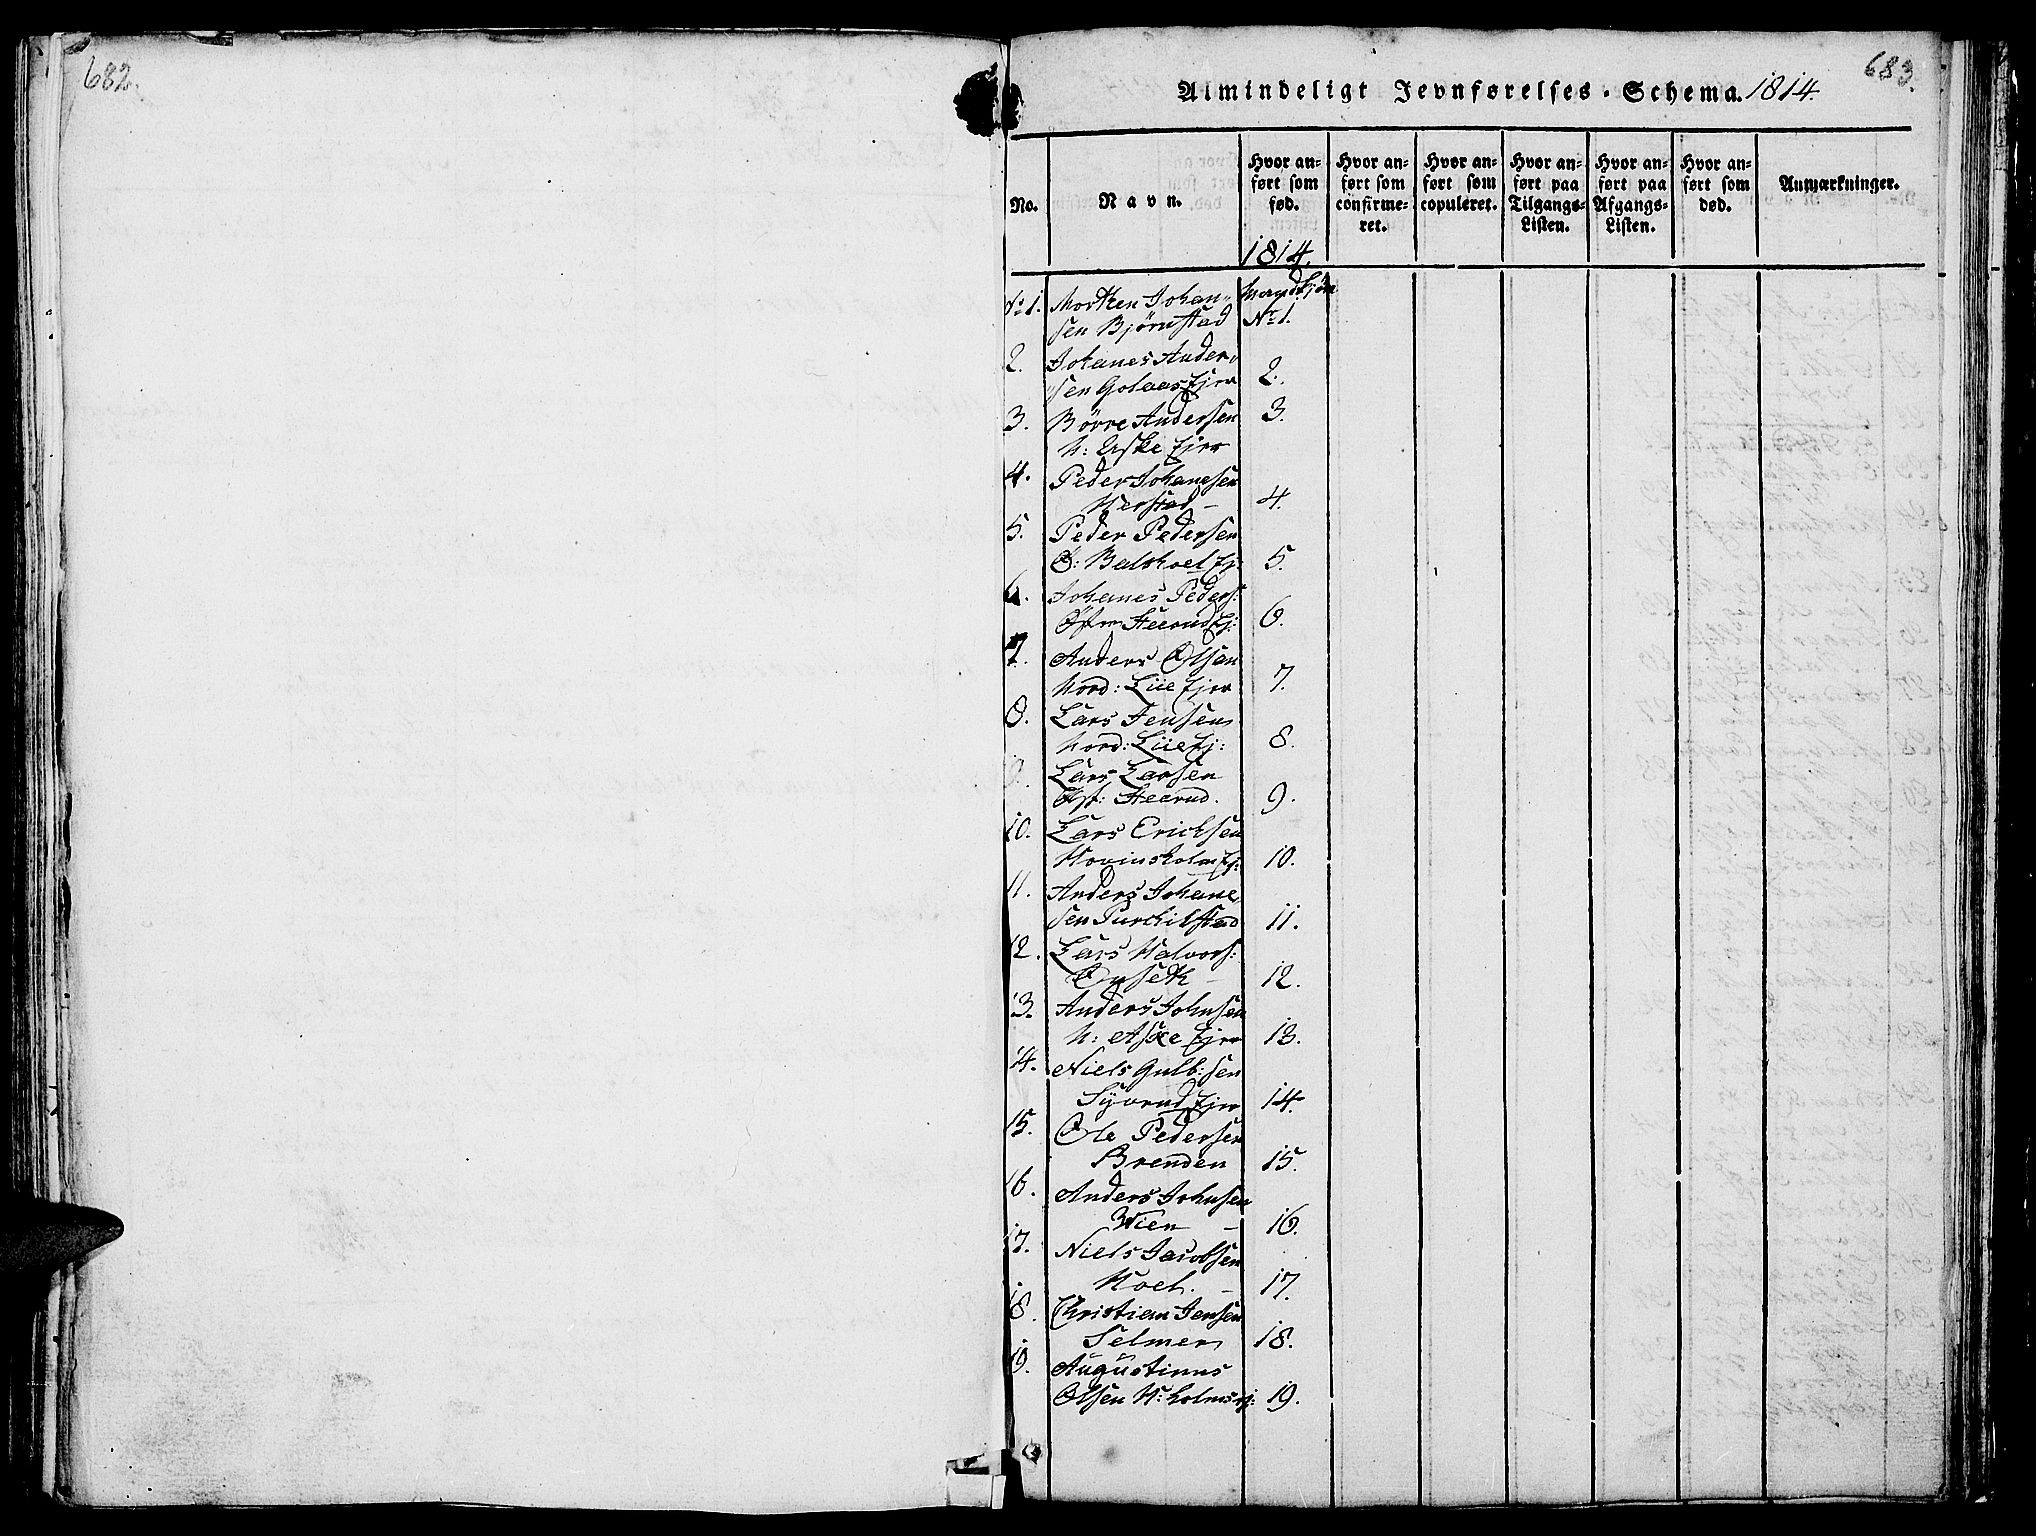 682.
683.
Almindeligt Jevnførelses-Schema. 1814.
No.
Navn.
Hvor an-
ført som
fød.
1814.
Hvor an-
ført som
confirme-
ret.
Hvor an-
ført som
copuleret.
Hvor an-
ført paa
Tilgangs-
Listen.
Hvor an-
ført paa
Afgangs-
Listen.
Hvor an-
ført som
død.
Anmærkninger.
No 1. Morthen Johan- Mandkjön
sen Björnstad No 1.
2. Johanes Ander-
sen Golaas Ejer 2.
3. Börre Andersen 3.
N: Aske Ejer
4. Peder Johanesen
Herstad - 4.
5. Peder Pedersen
Ø: Balshoel Ej 5.
6. Johanes Peders:
Steerud Ej: 6.
7. Anders Olsen
Nord: Liie Ejer 7.
8. Lars Jensen
Nord: Liie Ej: 8.
9. Lars Larsen
Steerud. 9.
10. Lars Ericksen
Hovinsholm Ej: 10.
11. Anders Johane
sen Purchilstad 11.
12. Lars Halvors:
Onseth - 12.
13. Anders Johnsen
N: Aske Ejer 13.
14. Niels Gulb:sen
Syverud Ejer 14.
15. Ole Pedersen
Brenden 15.
16. Anders Johnsen
Wien - 16.
17. Niels Jacobsen
Hoel. - 17.
18. Christian Jensen
Selmer 18.
19. Augustinus
Olsen H:holms ej: 19.